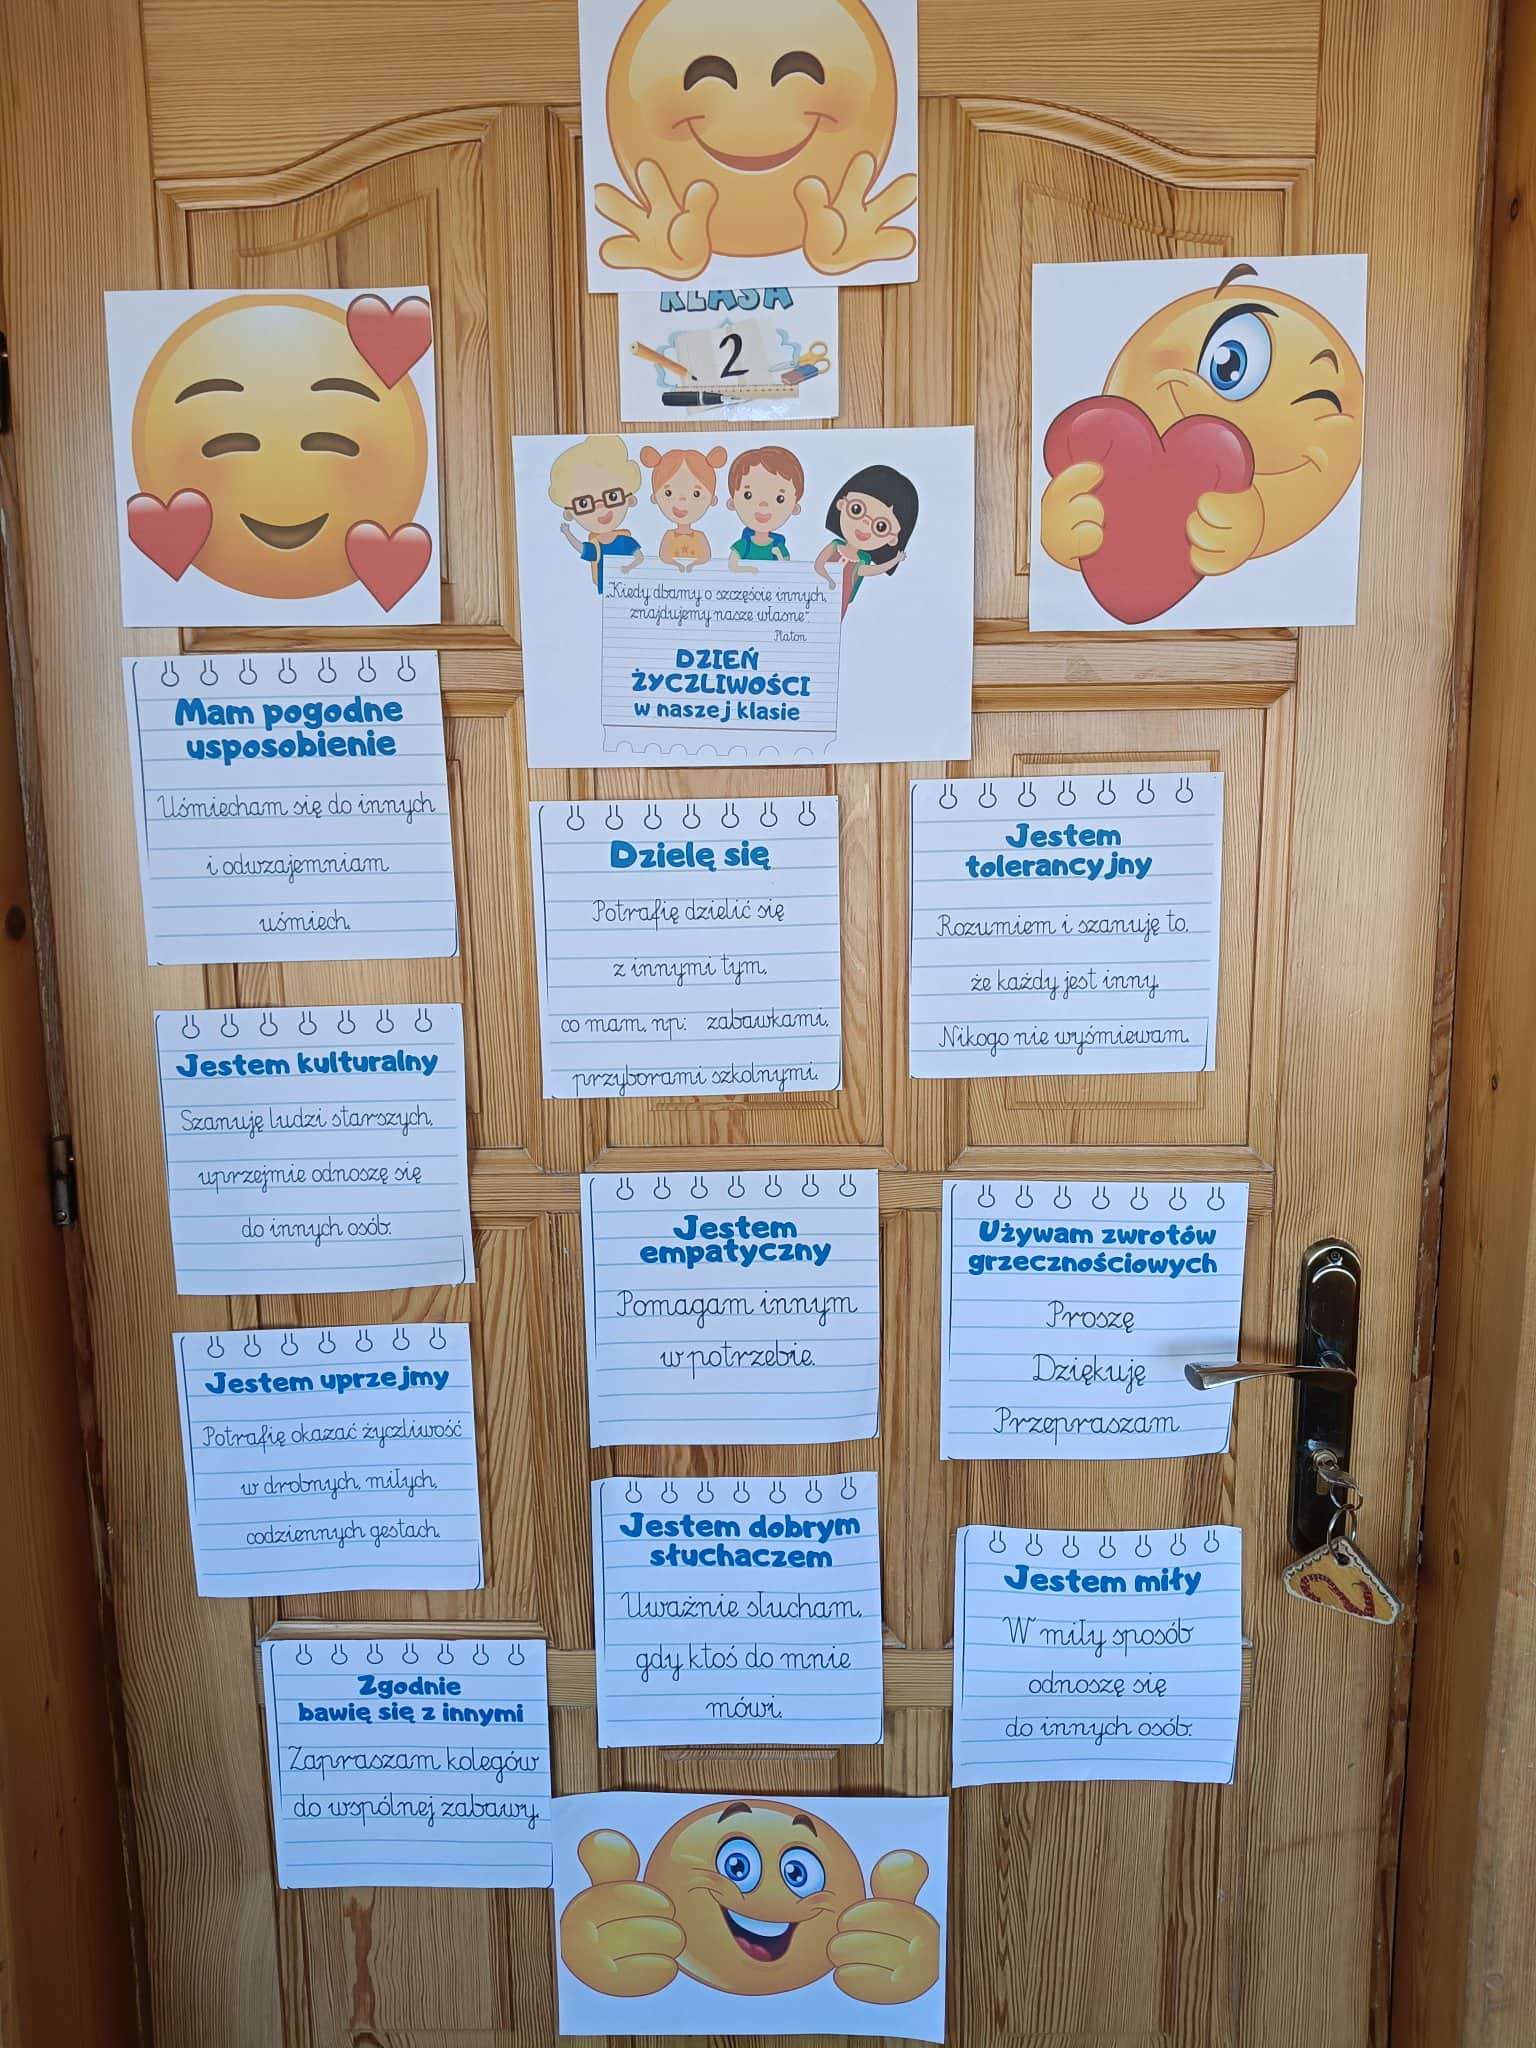 KLASA
2
„Kiedy dbamy o szczęście innych,
znajdujemy nasze własne".
Platon
DZIEŃ
ŻYCZLIWOŚCI
w naszej klasie
Mam pogodne
usposobienie
Uśmiecham się do innych
i odwzajemniam
uśmiech.
Dzielę się
Potrafię dzielić się
z innymi tym,
co mam, np: zabawkami,
przyborami szkolnymi.
Jestem
tolerancyjny
Rozumiem i szanuję to,
że każdy jest inny.
Nikogo nie wyśmiewam.
Jestem kulturalny
Szanuję ludzi starszych,
uprzejmie odnoszę się
do innych osób.
Jestem
empatyczny
Pomagam innym
w potrzebie.
Używam zwrotów
grzecznościowych
Proszę
Dziękuję
Przepraszam
Jestem uprzejmy
Potrafię okazać życzliwość
w drobnych, miłych,
codziennych gestach.
Jestem dobrym
słuchaczem
Uważnie słucham,
gdy ktoś do mnie
mówi.
Jestem miły
W miły sposób
odnoszę się
do innych osób.
Zgodnie
bawię się z innymi
Zapraszam kolegów
do wspólnej zabawy.
2